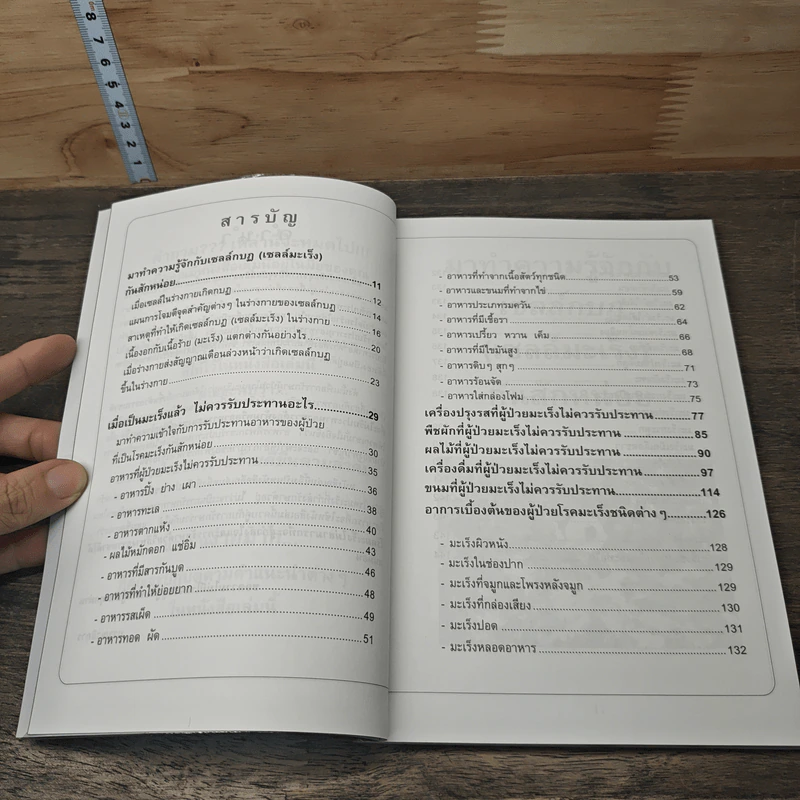 สารบัญ
มาทำความรู้จักกับเซลล์กบฏ (เซลล์มะเร็ง)
กันสักหน่อย........11
เมื่อเซลล์ในร่างกายเกิดกบฏ........12
แผนการโจมตีจุดสำคัญต่างๆ ในร่างกายของเซลล์กบฏ........14
สาเหตุที่ทำให้เกิดเซลล์กบฏ (เซลล์มะเร็ง) ในร่างกาย........16
เนื้องอกกับเนื้อร้าย (มะเร็ง) แตกต่างกันอย่างไร........20
เมื่อร่างกายส่งสัญญาณเตือนล่วงหน้าว่าเกิดเซลล์กบฏ
ขึ้นในร่างกาย........23
เมื่อเป็นมะเร็งแล้ว ไม่ควรรับประทานอะไร........29
มาทำความเข้าใจกับการรับประทานอาหารของผู้ป่วย
ที่เป็นโรคมะเร็งกันสักหน่อย........30
อาหารที่ผู้ป่วยมะเร็งไม่ควรรับประทาน........35
- อาหารปิ้ง ย่าง เผา........36
- อาหารทะเล........38
- อาหารตากแห้ง........40
- ผลไม้หมักดอก แช่อิ่ม........43
- อาหารที่มีสารกันบูด........46
- อาหารที่ทำให้ย่อยยาก........48
- อาหารรสเผ็ด........49
- อาหารทอด ผัด........51
- อาหารที่ทำจากเนื้อสัตว์ทุกชนิด........53
- อาหารและขนมที่ทำจากไข่........59
- อาหารประเภทรมควัน........62
- อาหารที่มีเชื้อรา........64
- อาหารเปรี้ยว หวาน เค็ม........66
- อาหารที่มีไขมันสูง........68
- อาหารดิบๆ สุกๆ........71
- อาหารร้อนจัด........73
- อาหารใส่กล่องโฟม........75
เครื่องปรุงรสที่ผู้ป่วยมะเร็งไม่ควรรับประทาน........77
พืชผักที่ผู้ป่วยมะเร็งไม่ควรรับประทาน........85
ผลไม้ที่ผู้ป่วยมะเร็งไม่ควรรับประทาน........90
เครื่องดื่มที่ผู้ป่วยมะเร็งไม่ควรรับประทาน........97
ขนมที่ผู้ป่วยมะเร็งไม่ควรรับประทาน........114
อาการเบื้องต้นของผู้ป่วยโรคมะเร็งชนิดต่างๆ........126
- มะเร็งผิวหนัง........128
- มะเร็งในช่องปาก........129
- มะเร็งที่จมูกและโพรงหลังจมูก........129
- มะเร็งที่กล่องเสียง........130
- มะเร็งปอด........131
- มะเร็งหลอดอาหาร........132
8 7 6 5 4 3 2 1